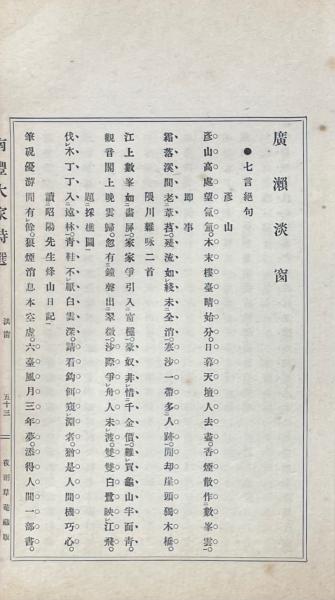 廣瀨淡窗
●七言絕句
彥山
彥山高處望氤氳。木末樓臺晴始分。日暮天壇人去盡。香煙散作數峯雲。
卽事
霜落溪間老葦苕。殘流如綫未全消。寒沙一帶多人跡。閒却崖頭獨木橋。
隈川雜咏二首
江上數峯如畫屏。家家爭引入窗櫺。豪奴非惜千金價。難買龜山半面靑。
觀音閣上晚雲歸。忽有鐘聲出翠微。沙際爭舟人未渡。雙雙白鷺映江飛。
題採樵圖
伐木丁丁入遠林。靑鞋不厭白雲深。請看鈎餌窺淵者。猶是人間機巧心。
讀昭陽先生烽山日記
筆硯優游閒有餘。狼煙消息本空虛。六臺風月三年夢。添得人間一部書。
南豐大家詩選
淡窗
五十三
夜雨草菴藏版